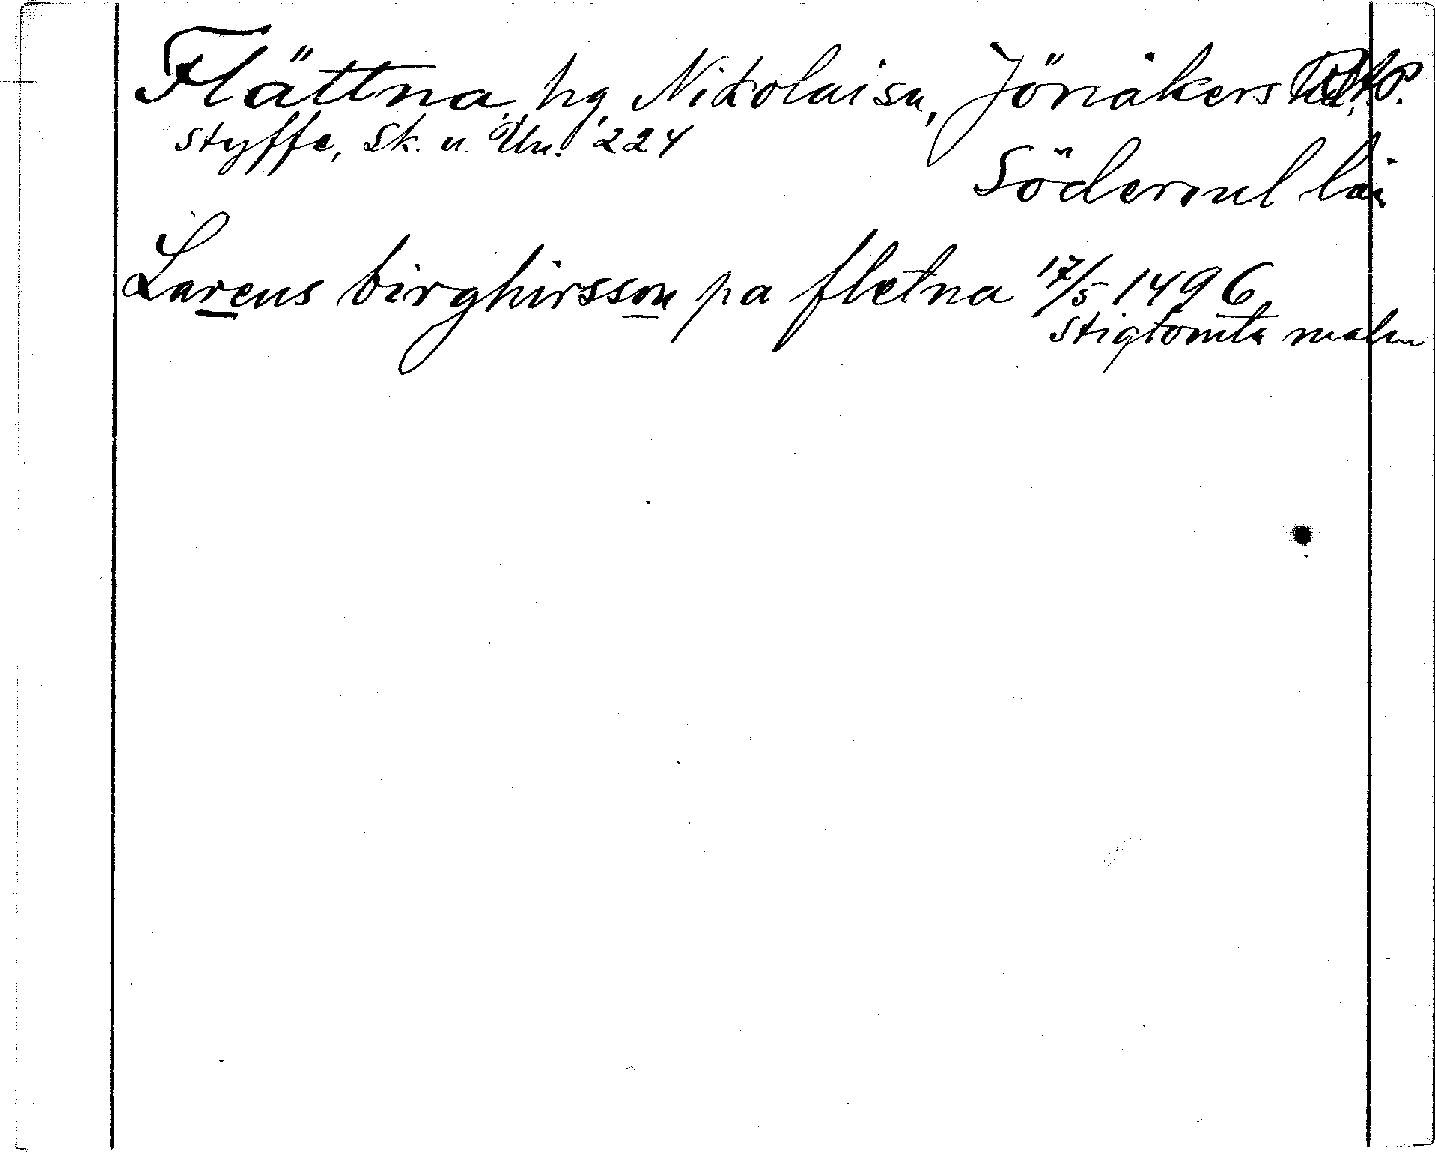 Flättna, hg, Nikolai sn, Jönåkers
Styffe, Sk. u. Un. 224
Söderml län
Larens birghirsson pa fletna 17/5 1496
Stigtomta malm